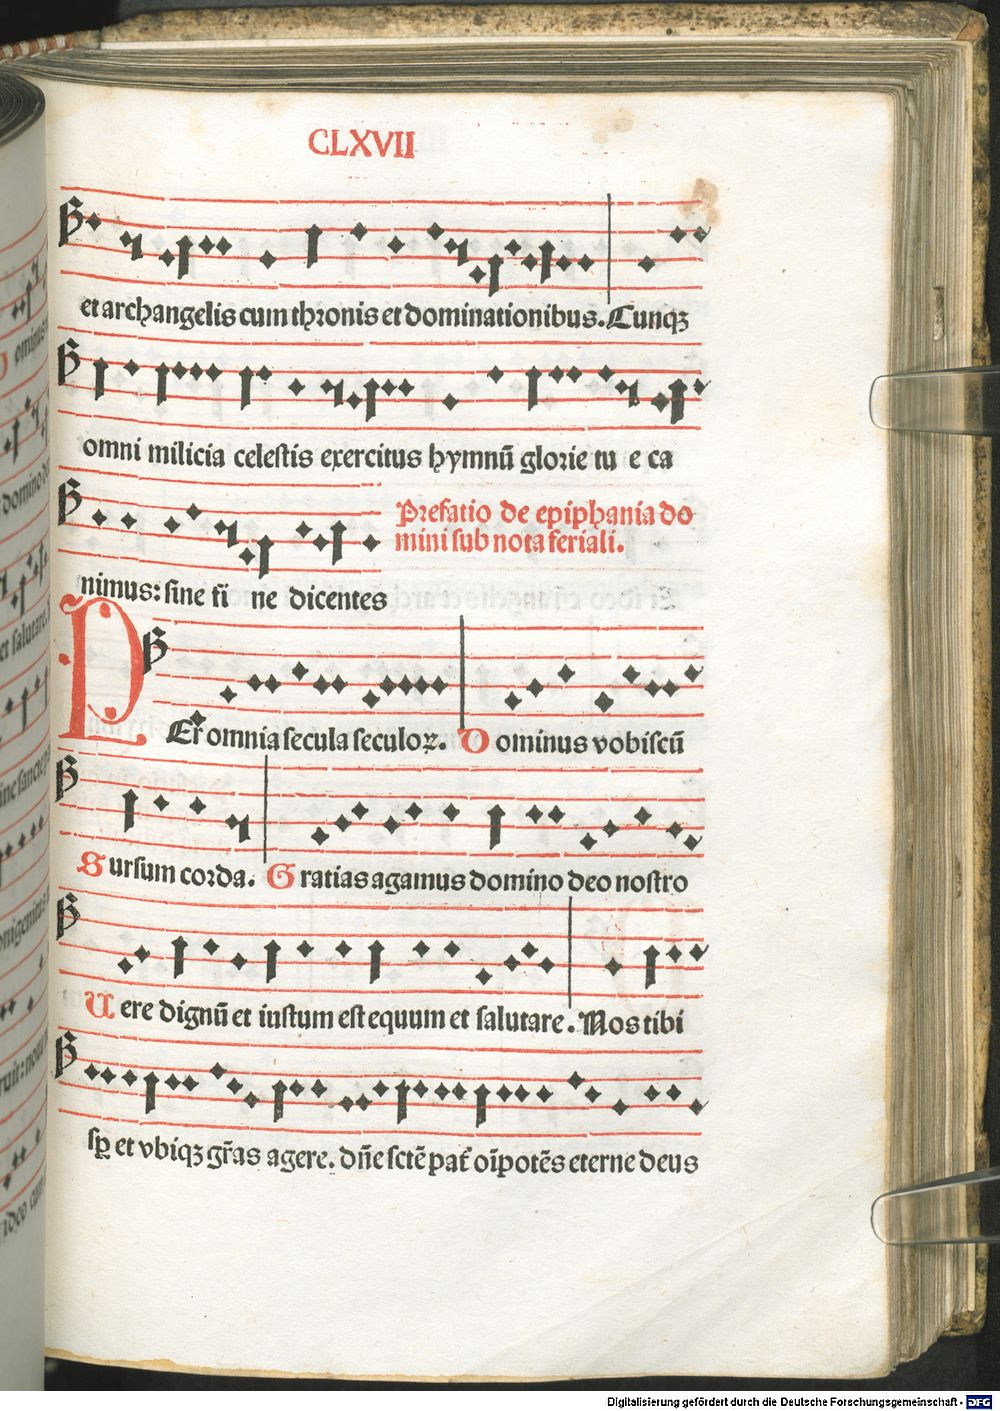 CLXVII
et archangelis cum thronis et dominationibus. Cunqꝫ
omni milicia celestis exercitus hymnū glorie tu e ca
nimus: sine fi ne dicentes
Prefatio de epiphania do
mini sub nota feriali.
PEr omnia secula seculoꝝ. Dominus vobiscū
Sursum corda. Gratias agamus domino deo nostro
Uere dignū et iustum est equum et salutare. Nos tibi
sꝑ et vbiqꝫ gr̄as agere. dn̄e sctē pat̄ oīpotēs eterne deus
Digitalisierung gefördert durch die Deutsche Forschungsgemeinschaft - DFG